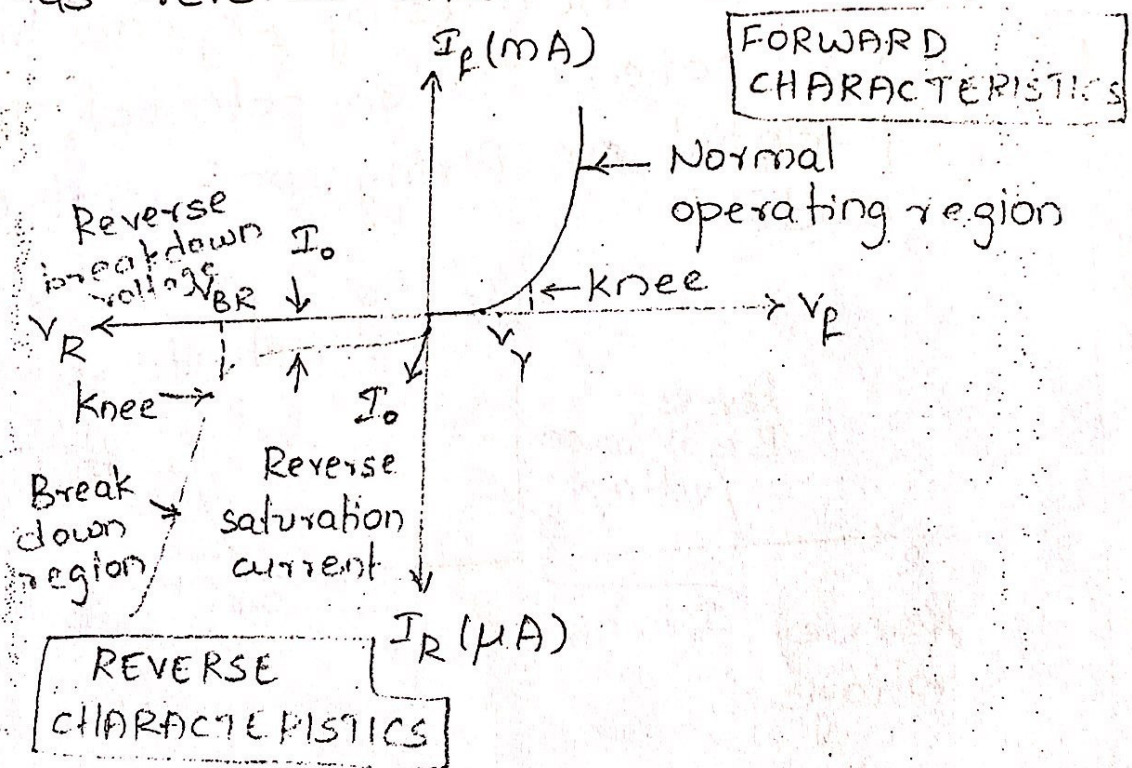 I_f (mA)
FORWARD
CHARACTERISTICS
Normal
operating region
knee
V_f
V_γ
Reverse
breakdown
voltage V_BR
I_o
V_R
Knee
I_o
Reverse
saturation
current
Break
down
region
I_R (μA)
REVERSE
CHARACTERISTICS